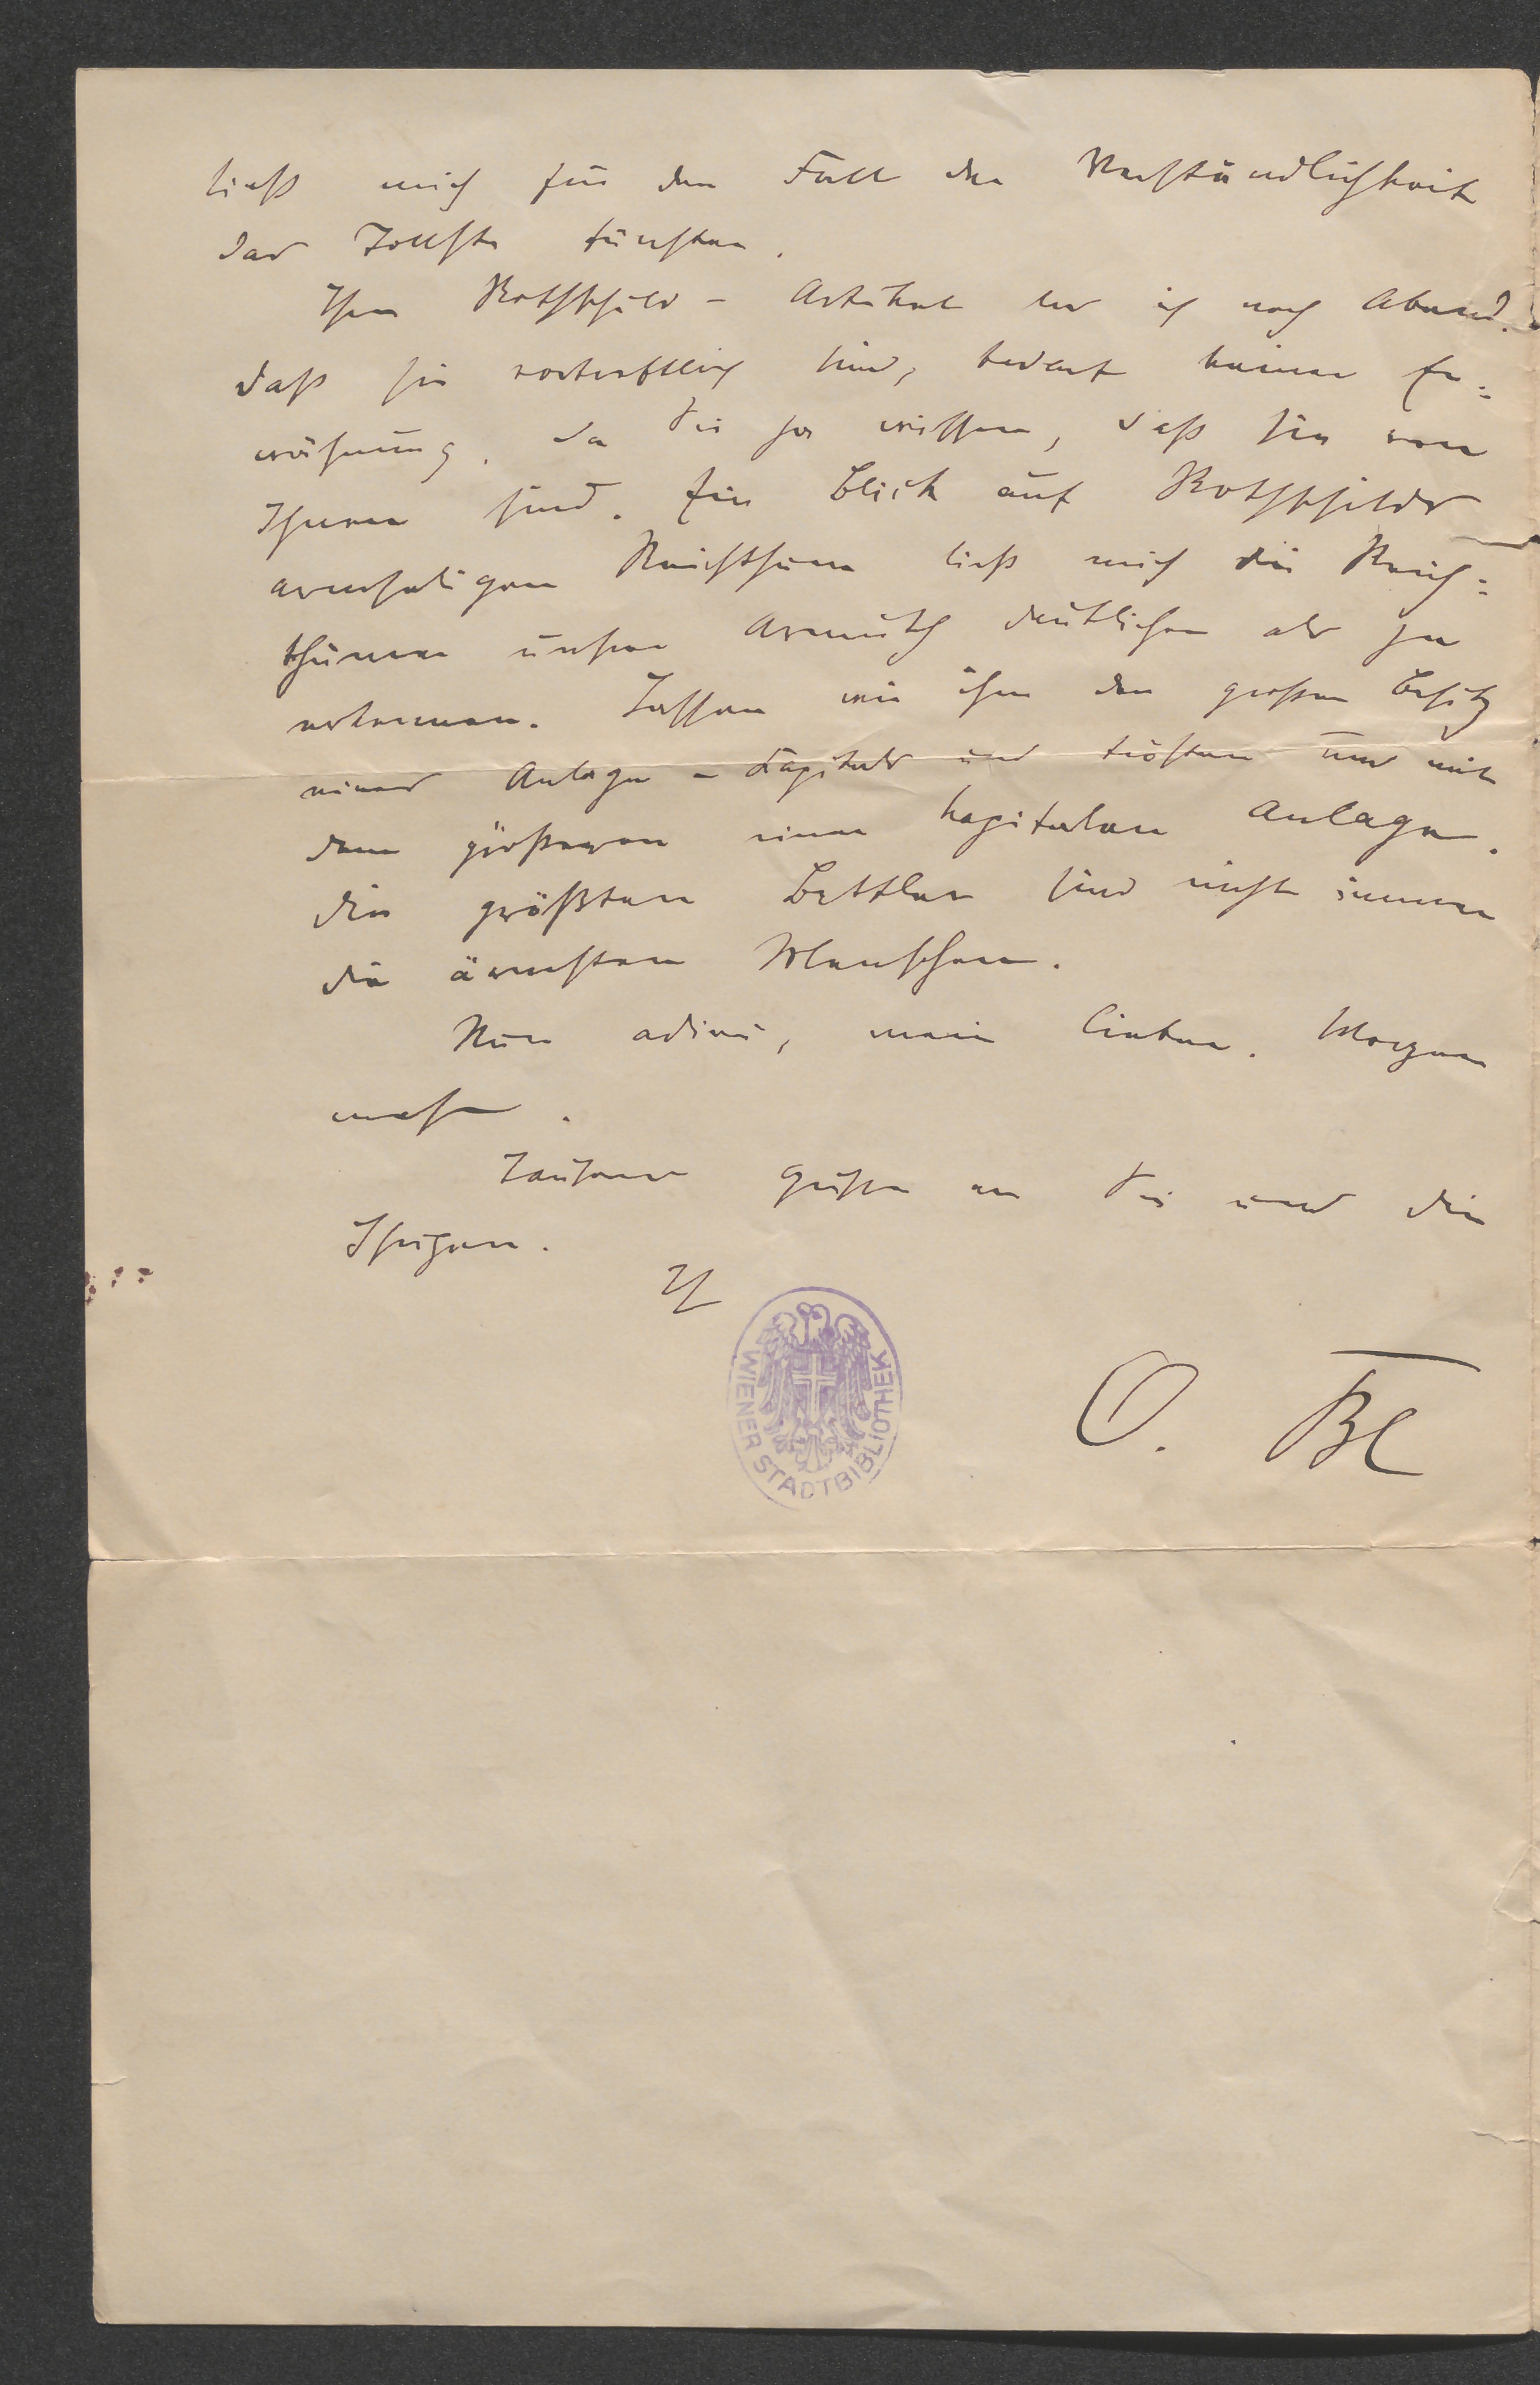 ließ mich für den Fall der Verständlichkeit
das Tollste fürchten.
Ihre Rothschild-Artikel las ich noch Abend.
Daß sie vortrefflich sind, bedarf keiner Er=
wähnung, da Sie ja wissen, daß sie von
Ihnen sind. Ein Blick auf Rothschilds
armseligen Reichthum ließ mich die Reich=
thümer unserer Armuth deutlicher als je
erkennen. Lassen wir ihm den großen Besitz
eines Anlage-Kapitals und trösten uns mit
dem größeren einer kapitalen Anlage.
Die größten Bettler sind nicht immer
die ärmsten Menschen.
Nun adieu, mein Lieber. Morgen
mehr.
Tausend Grüße an Sie und die
Ihrigen.
Ihr
WIENER STADTBIBLIOTHEK
O.